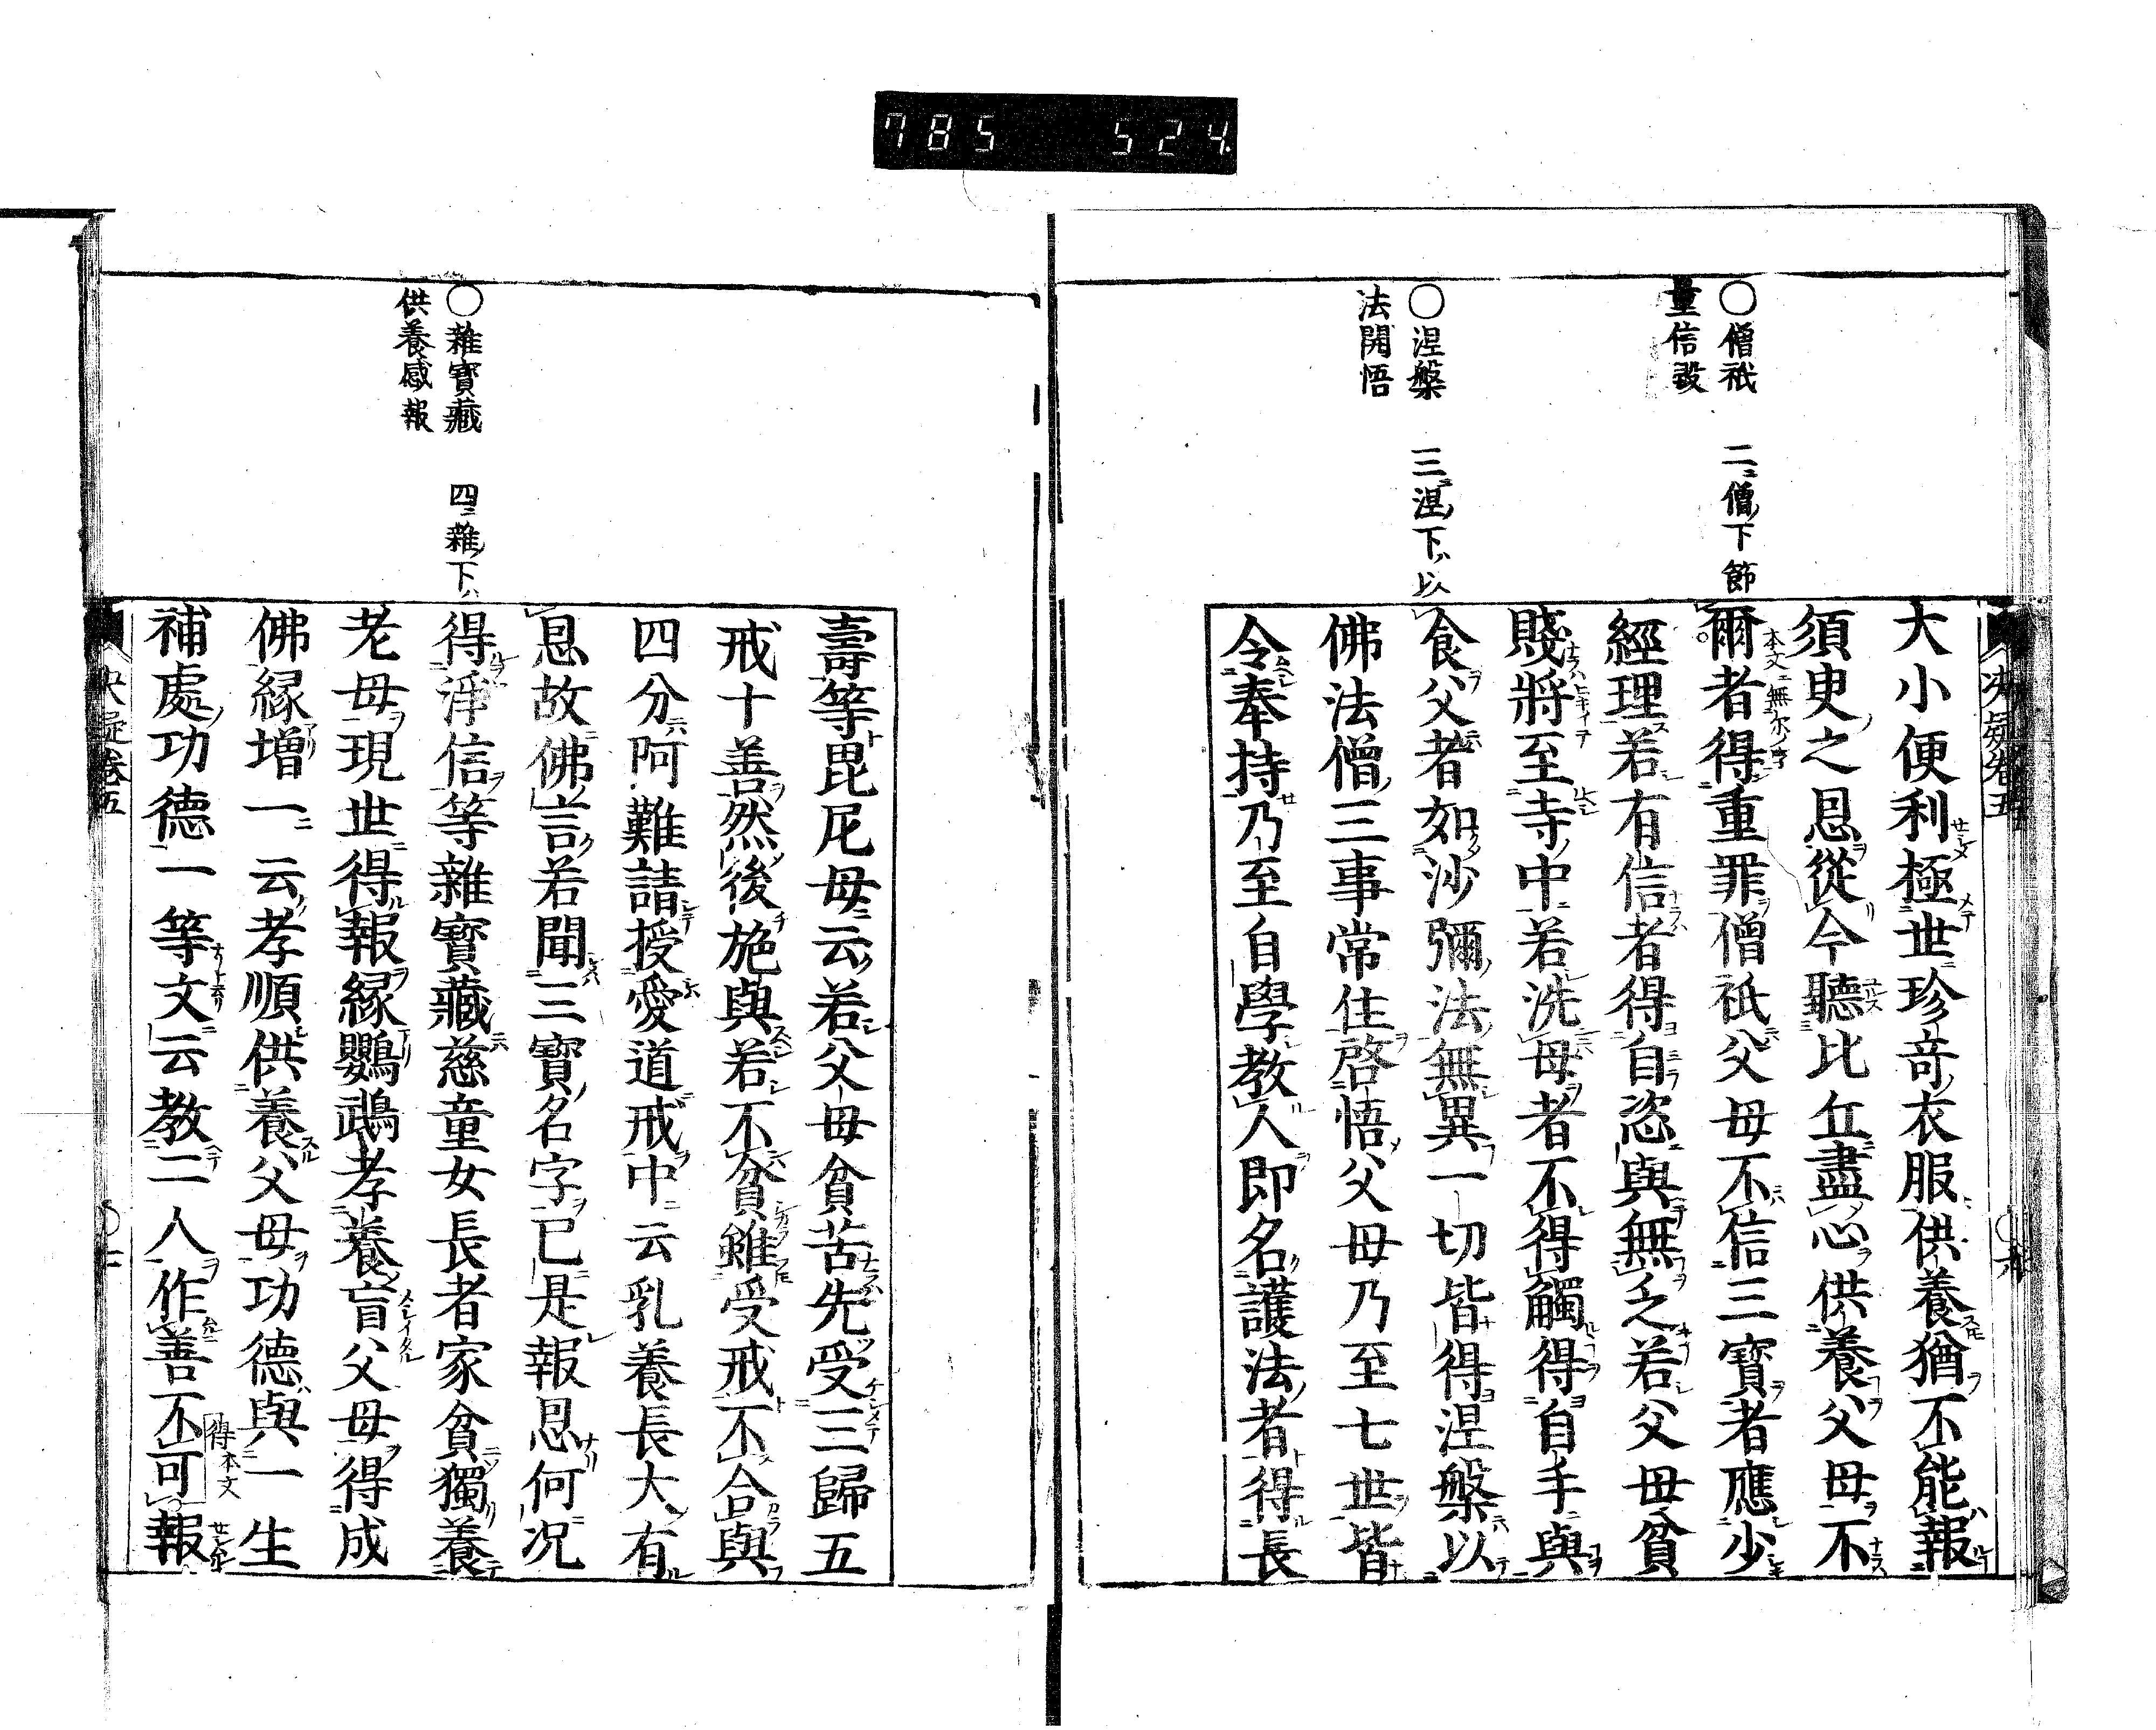 785 524
決疑卷五
○僧祇
量信毀
二僧下節
○涅槃
法開悟
三涅下以
大小便利極世珍奇衣服供養猶不能報
須臾之恩從今聽比丘盡心供養父母不
爾者得重罪僧祇父母不信三寶者應少
本文無尓字
經理若有信者得自恣與無乏若父母貧
賤將至寺中若洗母者不得觸得自手與
食父者如沙彌法無異一切皆得涅槃以
佛法僧三事常住啓悟父母乃至七世皆
令奉持乃至自學教人即名護法者得長
○雜寶藏
供養感報
四雜下
壽等毘尼母云若父母貧苦先受三歸五
戒十善然後施與若不貧雖受戒不合與
四分阿難請授愛道戒中云乳養長大有
恩故佛言若聞三寶名字已是報恩何況
得淨信等雜寶藏慈童女長者家貧獨養
老母現世得報緣鸚鵡孝養盲父母得成
佛緣增一云孝順供養父母功德與一生
補處功德一等文云教二人作善不可報
得本文
決疑卷五